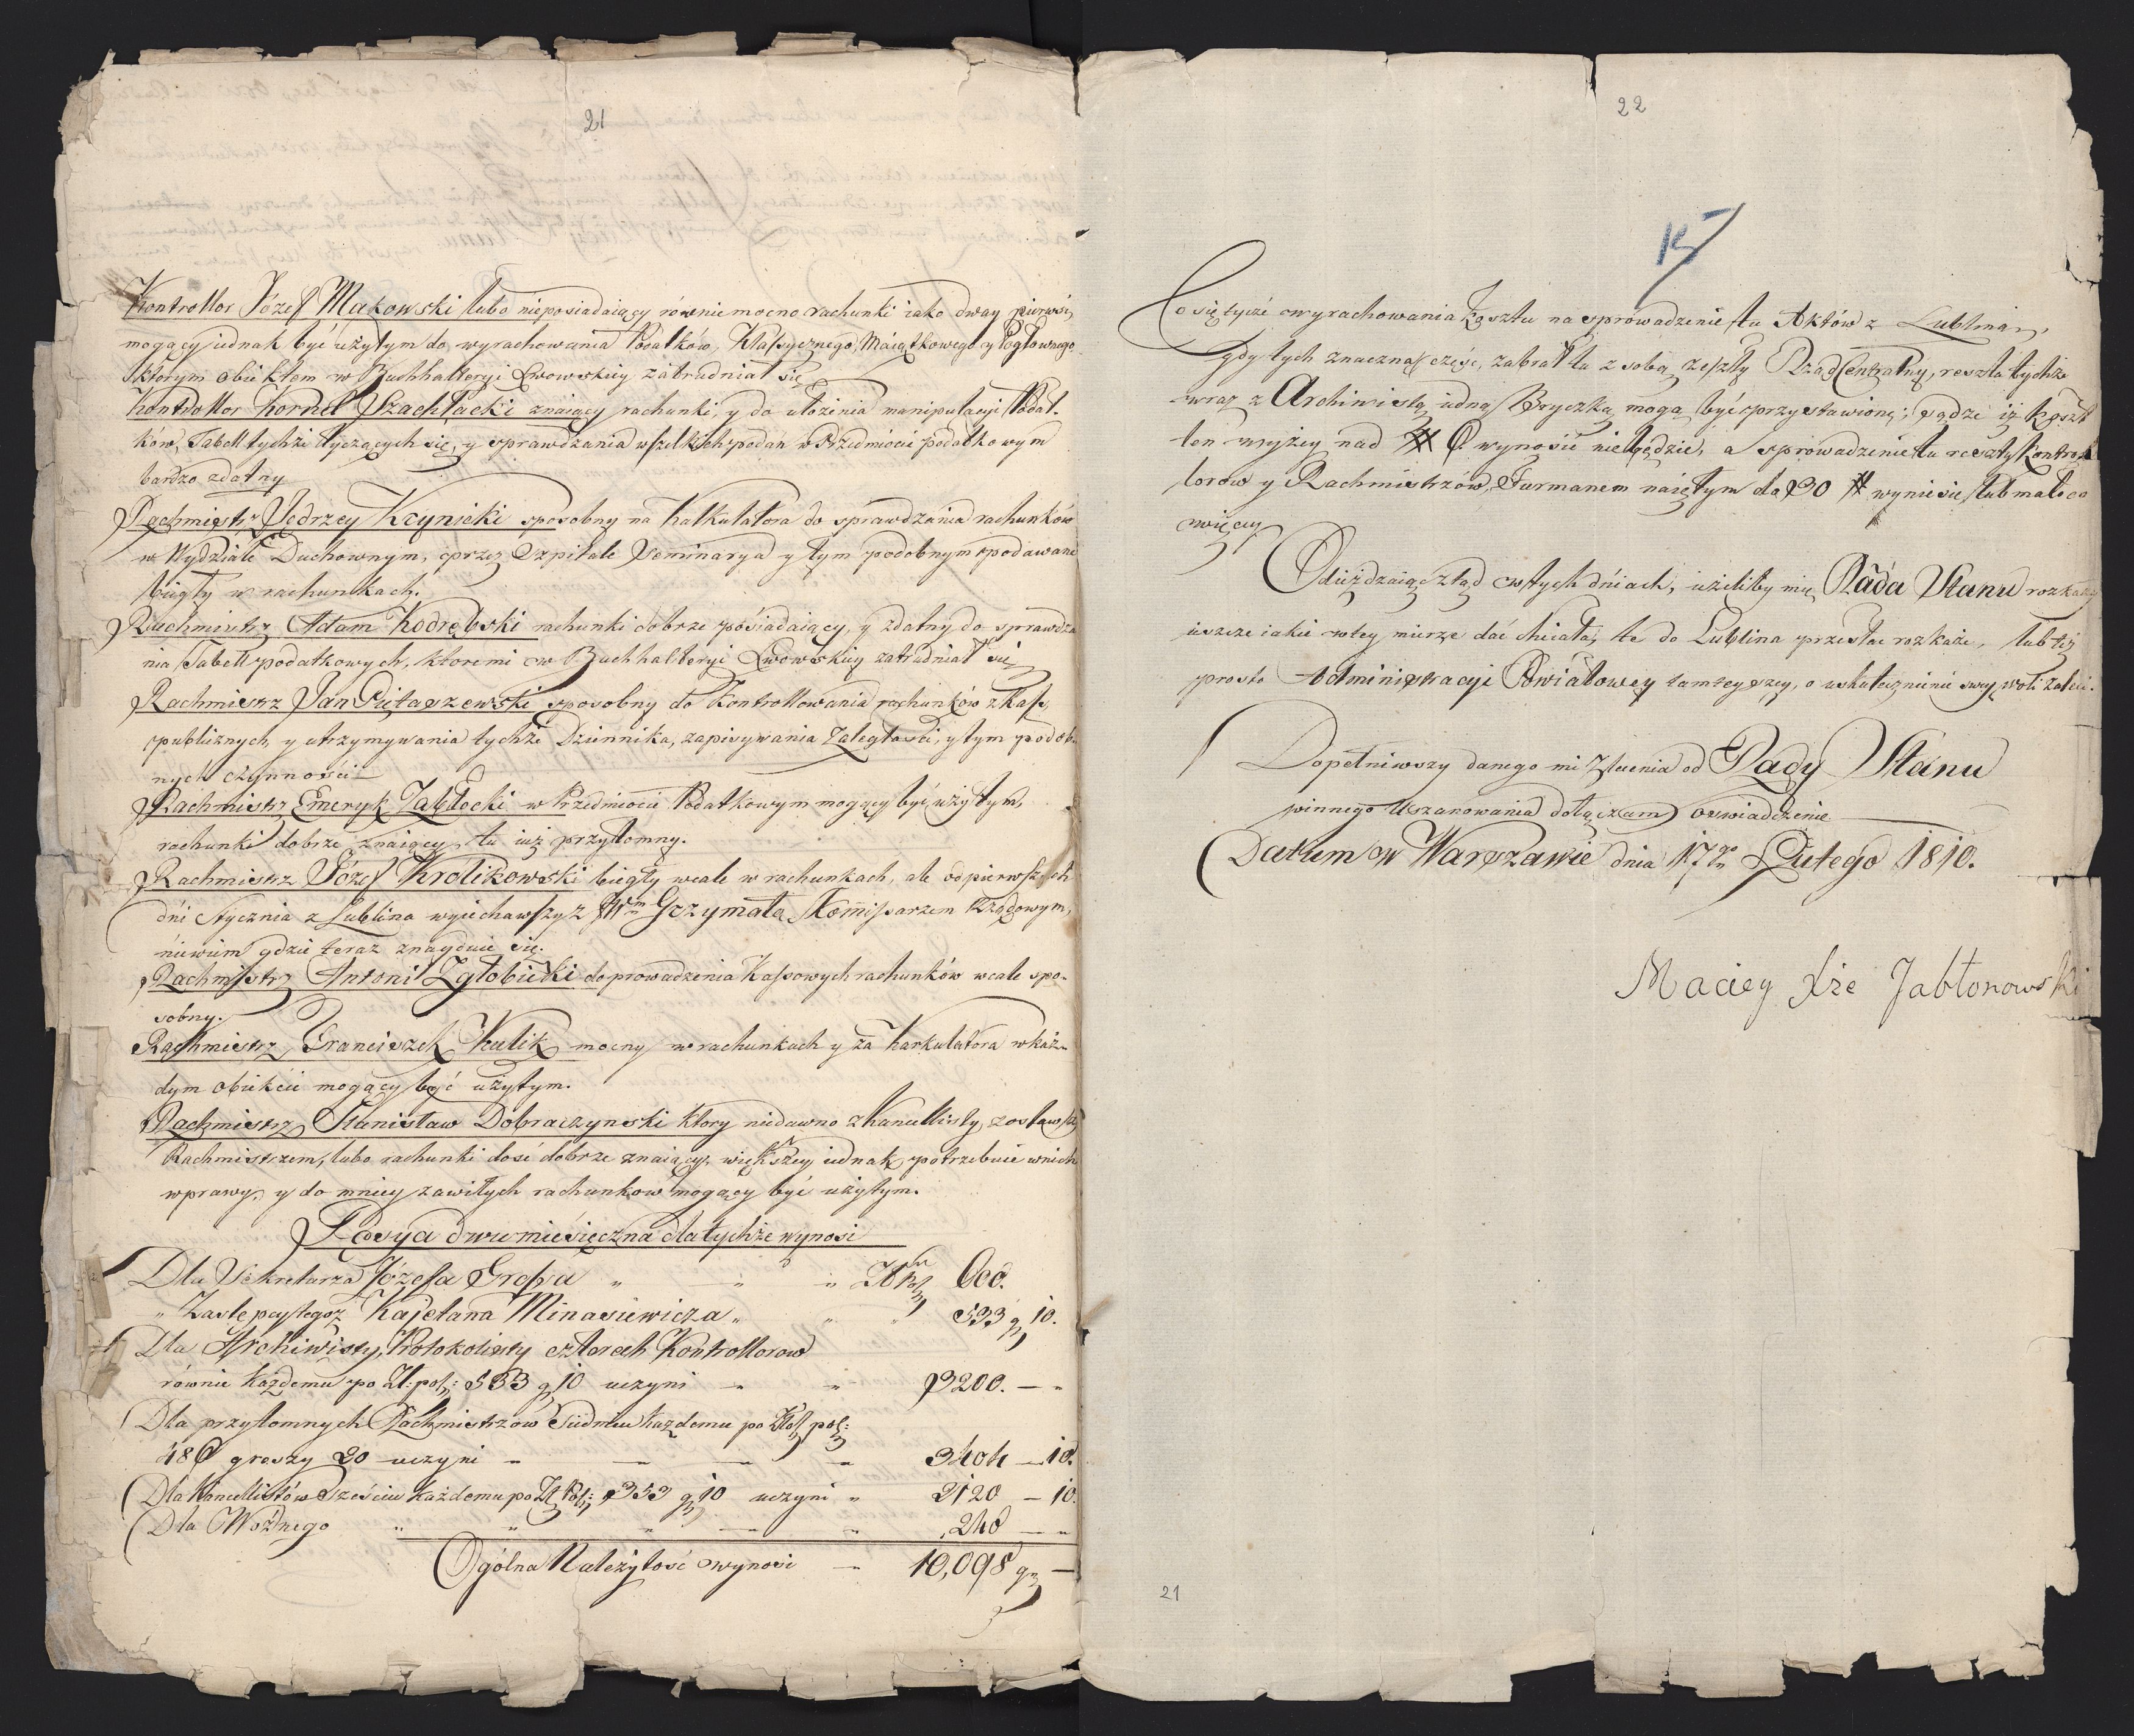 21
Kontrollor Józef Makowski lubo nieposiadaiący równie mocno rachunki iako dway pierwsi,
mogący iednak być użytym do wyrachowania Podatków, Klassycznego, Maiątkowego y Pogłownego
którym obiektem w Buchhalteryi Lwowskiey zatrudniał się
Kontrollor Kornel Szachłacki znaiący rachunki, y do ułożenia manipulacyi Podat-
ków, Tabell tychże tyczących się, y sprawdzania wszelkich podań w Przedmiocie podatkowym
bardzo zdatny
Rachmistrz Jędrzey Krynicki sposobny na Kalkulatora do sprawdzania rachunków
w Wydziale Duchownym, przez Szpitale Seminarya y tym podobnym podawane
biegły w rachunkach.
Rachmistrz Adam Kodrębski rachunki dobrze posiadaiący, y zdatny do sprawdza
nia Tabell podatkowych, ktoremi w Buchhalteryi Lwowskiey zatrudniał się
Rachmistrz Jan Pietaszewski sposobny do Kontrollowania rachunków z Kass
publicznych, y utrzymywania tychże Dziennika, zapisywania Zaległości, y tym podob-
nych czynności
Rachmistrz Emeryk Zabłocki w Przedmiocie Podatkowym mogący być użytym,
rachunki dobrze znaiący, tu iuż przytomny.
Rachmistrz Józef Królikowski biegły wcale w rachunkach, ale od pierwszych
dni Stycznia z Lublina wyiechawszy z Grzymałą Kommissarzem Rządowym,
niewiem gdzie teraz znayduie się.
Rachmistrz Antoni Zgłobicki do prowadzenia Kassowych rachunków wcale spo-
sobny.
Rachmistrz Franciszek Kulik mocny w rachunkach y za Karkulatora w każ-
dym obiekcie mogący być użytym.
Rachmistrz Stanisław Dobraczynski ktory niedawno z Kancellisty zostawszy
Rachmistrzem, lubo rachunki dość dobrze znaiący, większey iednak potrzebuie w nich
wprawy, y do mniey zawiłych rachunkow mogący być użytym.
Pensya dwumiesięczna dla tychże wynosi
Dla Sekretarza Józefa Grossa " " "
" Zastępcy tegoż Kajetana Minasiewicza " " " 533 g 10.
Dla Archiwisty, Protokolisty czterech Kontrollorow
równie każdemu po Zł: pol: 533 g 10 uczyni " " 3200. — "
Dla przytomnych Rachmistrzow Siedmiu każdemu po Złot pol:
486 groszy 20 uczyni " — — " 3404 — 10.
Dla Kancellistów Sześciu każdemu po Zł Pol: 353 g 10 uczyni " 2120 — 10.
Dla Woźnego " " " — " 240 — "
Ogólna Należytość wynosi — 10,098 g —
22
15
Co się tycze wyrachowania kosztu na sprowadzenie tu Aktów z Lublina,
gdy tych znaczną część, zabrał tu z sobą zeszły Rząd Centralny, reszta tychże
wraz z Archiwistą iedną Bryczką mogą być przystawione; sądzę iż koszt
ten wyżey nad # 6 wynosić niebędzie, a sprowadzenie tu reszty Kontrol
lorów y Rachmistrzów, Furmanem naiętym do 30 # wyniesie, lub mało co
więcey
Odieżdzaiąc ztąd w tych dniach, ieżeliby mię Rada Stanu rozkazy
ieszcze iakie w tey mierze dać chciała, te do Lublina przesłać rozkaże, lub też
prosto Administracyi Powiatowey tamteyszey, o uskutecznienie swey woli zaleci.
Dopełniwszy danego mi Zlecenia od Rady Stanu
winnego Uszanowania dołączam oswiadczenie
Datum w Warszawie dnia 17go Lutego 1810.
Maciey Xże Jabłonowski
21